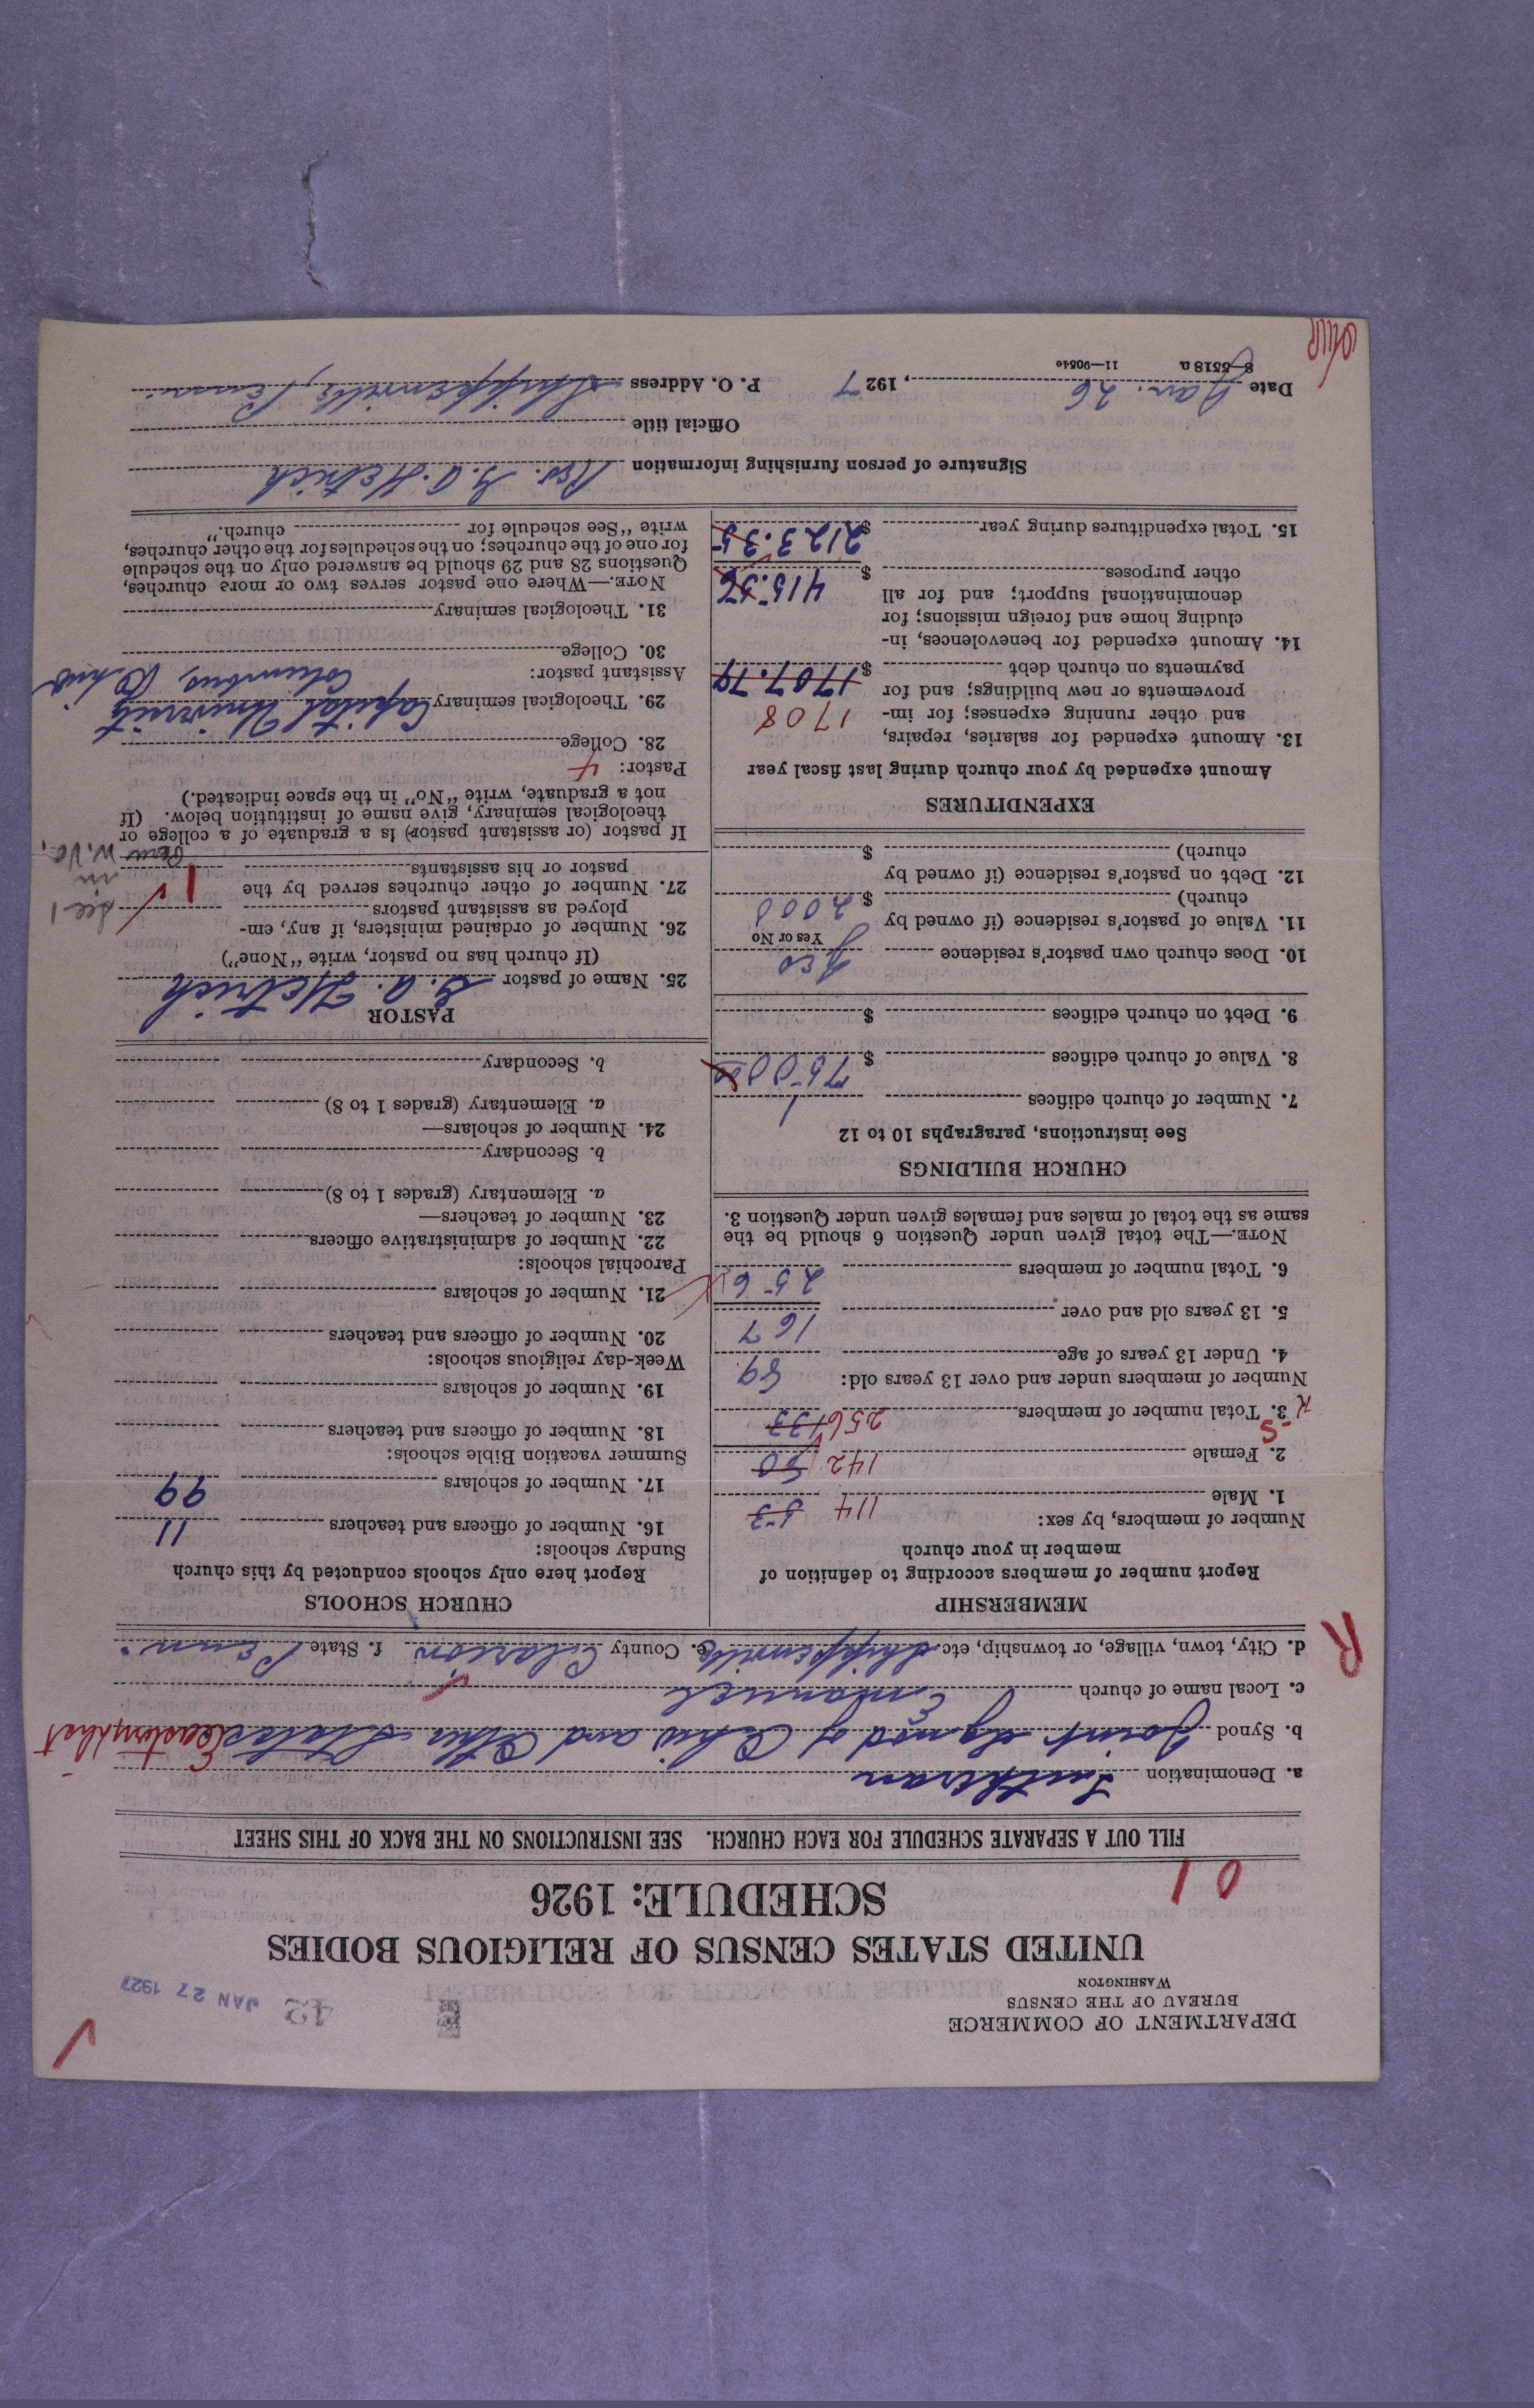 DEPARTMENT OF COMMERCE
BUREAU OF THE CENSUS
WASHINGTON
42 JAN 27 1927
UNITED STATES CENSUS OF RELIGIOUS BODIES
SCHEDULE: 1926
01
FILL OUT A SEPARATE SCHEDULE FOR EACH CHURCH. SEE INSTRUCTIONS ON THE BACK OF THIS SHEET
a. Denomination Lutheran
b. Synod Joint Synod of Ohio and Other States Eastern Dist
c. Local name of church Emanuel
d. City, town, village, or township, etc. Shippenville e. County Clarion f. State Penn.
R
MEMBERSHIP
Report number of members according to definition of
member in your church
Number of members, by sex:
1. Male 114 53
2. Female 142 80
3. Total number of members 256 133
Number of members under and over 13 years old:
4. Under 13 years of age 89
5. 13 years old and over 167
6. Total number of members 256
NOTE.—The total given under Question 6 should be the
same as the total of males and females given under Question 3.
CHURCH BUILDINGS
See instructions, paragraphs 10 to 12
7. Number of church edifices 1
8. Value of church edifices $ 7500 00
9. Debt on church edifices $
10. Does church own pastor's residence Yes
Yes or No
11. Value of pastor's residence (if owned by
church) $ 2000
12. Debt on pastor's residence (if owned by
church) $
EXPENDITURES
Amount expended by your church during last fiscal year
13. Amount expended for salaries, repairs,
and other running expenses; for im- 1708
provements or new buildings; and for
payments on church debt $ 1707.79
14. Amount expended for benevolences, in-
cluding home and foreign missions; for
denominational support; and for all
other purposes $ 415.56
15. Total expenditures during year $ 2123.35
CHURCH SCHOOLS
Report here only schools conducted by this church
Sunday schools:
16. Number of officers and teachers 11
17. Number of scholars 99
Summer vacation Bible schools:
18. Number of officers and teachers
19. Number of scholars
Week-day religious schools:
20. Number of officers and teachers
21. Number of scholars
Parochial schools:
22. Number of administrative officers
23. Number of teachers—
a. Elementary (grades 1 to 8)
b. Secondary
24. Number of scholars—
a. Elementary (grades 1 to 8)
b. Secondary
PASTOR
25. Name of pastor G. A. Hetrich
(If church has no pastor, write "None")
26. Number of ordained ministers, if any, em-
ployed as assistant pastors
27. Number of other churches served by the
pastor or his assistants 1
See 1
in
Penn W. Va.
If pastor (or assistant pastor) is a graduate of a college or
theological seminary, give name of institution below. (If
not a graduate, write "No" in the space indicated.)
Pastor: 4
28. College
29. Theological seminary Capital University
Columbus, Ohio
Assistant pastor:
30. College
31. Theological seminary
NOTE.—Where one pastor serves two or more churches,
Questions 28 and 29 should be answered only on the schedule
for one of the churches; on the schedules for the other churches,
write "See schedule for church."
Signature of person furnishing information Rev. G. A. Hetrich
Official title
Date Jan. 26, 1927 P. O. Address Shippenville, Penn.
8-5518 a 11—9034c